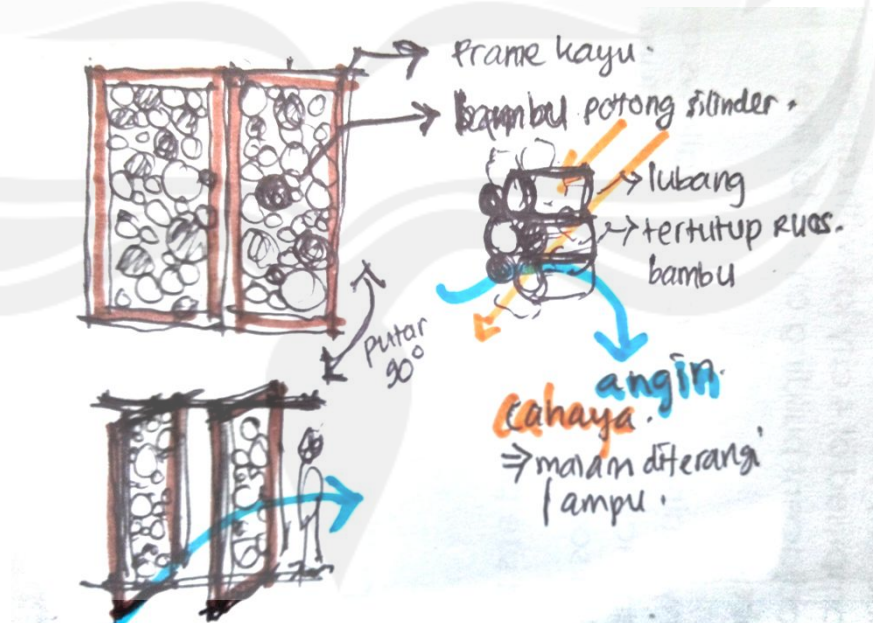 frame kayu.
bambu potong silinder.
lubang
tertutup ruas.
bambu
putar
90°
angin.
cahaya.
⇒ malam diterangi
lampu.